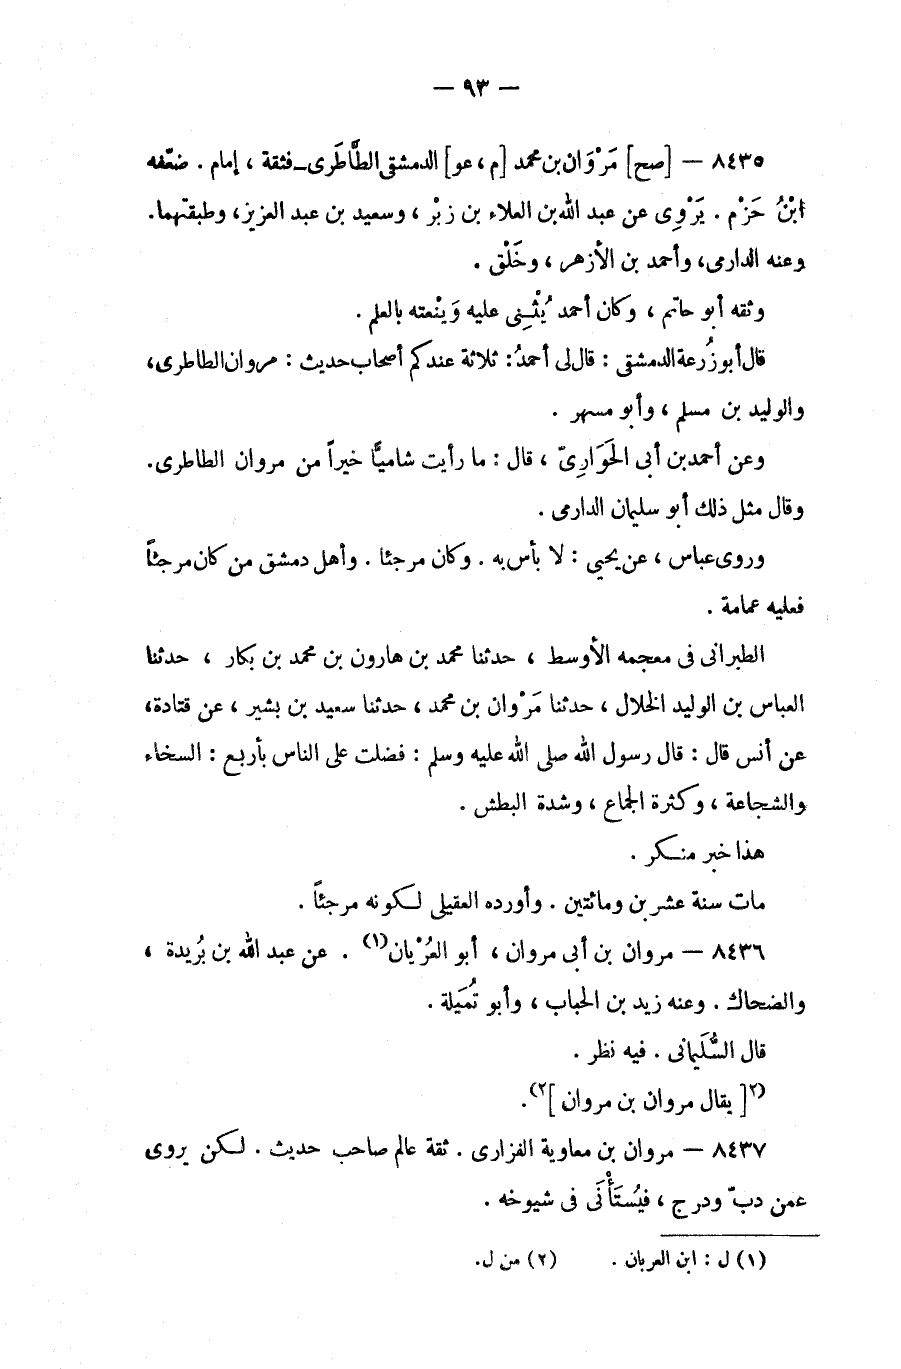 — ٩٣ —
٨٤٣٥ — [صح] مَرْوَان بن محمد [م، عو] الدمشقى الطَّاطَرى ـ فثقة ، إمام . ضعّفه
ابْنُ حَزْم . يَرْوِى عن عبد الله بن العلاء بن زبْر ، وسعيد بن عبد العزيز، وطبقتهما.
وعنه الدارمى، وأحمد بن الأزهر ، وخَلْق .
وثقه أبو حاتم ، وكان أحمد يُثْنِى عليه وَينْعته بالعلم .
قال أبو زُرعة الدمشقى : قال لى أحمدُ: ثلاثة عندكم أصحاب حديث : مروان الطاطرى،
والوليد بن مسلم ، وأبو مسهر .
وعن أحمد بن أبى الحَوَارِىّ ، قال : ما رأيت شاميًّا خيراً من مروان الطاطرى.
وقال مثل ذلك أبو سليمان الدارمى .
وروى عباس ، عن يحيى : لا بأس به . وكان مرجئا . وأهل دمشق من كان مرجئاً
فعليه عمامة .
الطبرانى فى معجمه الأوسط ، حدثنا محمد بن هارون بن محمد بن بكار ، حدثنا
العباس بن الوليد الخلال ، حدثنا مَرْوان بن محمد ، حدثنا سعيد بن بشير ، عن قتادة،
عن أنس قال : قال رسول الله صلى الله عليه وسلم : فضلت على الناس بأربع : السخاء
والشجاعة ، وكثرة الجماع ، وشدة البطش .
هذا خبر منكر .
مات سنة عشر بن ومائتين . وأورده العقيلى لكونه مرجئاً .
٨٤٣٦ — مروان بن أبى مروان ، أبو العُرْيان(١) . عن عبد الله بن بُريدة ،
والضحاك . وعنه زيد بن الحباب ، وأبو تُمَيلة .
قال السُّلَيمانى . فيه نظر .
(٢[ يقال مروان بن مروان ]٢).
٨٤٣٧ — مروان بن معاوية الفزارى . ثقة عالم صاحب حديث . لكن يروى
عمن دبّ ودرج ، فيُستَأْنَى فى شيوخه .
(١) ل : ابن العربان . (٢) من ل.